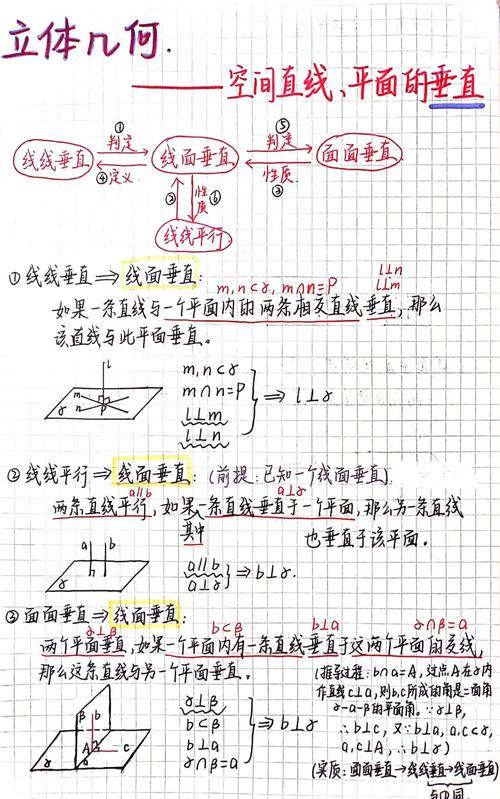 立体几何.
——空间直线、平面的垂直
① ⑤
线线垂直 判定 线面垂直 判定 面面垂直
④定义 性质
③
② 性质 ⑥
线线平行
①线线垂直⇒线面垂直:
m,n⊂γ, m∩n=P l⊥n
l⊥m
如果一条直线与一个平面内的两条相交直线垂直,那么
该直线与此平面垂直。
l
m
n P
γ
m,n⊂γ
m∩n=P
l⊥m
l⊥n
⇒ l⊥γ
②线线平行⇒线面垂直:(前提:已知一个线面垂直)
a∥b a⊥γ
两条直线平行,如果一条直线垂直于一个平面,那么另一条直线
其中 也垂直于该平面。
a b
γ
a∥b
a⊥γ
⇒b⊥γ.
③面面垂直⇒线面垂直:
γ⊥β b⊂β b⊥a γ∩β=a
两个平面垂直,如果一个平面内有一条直线垂直于这两个平面的交线,
那么这条直线与另一个平面垂直。
β b
A c
γ a
γ⊥β
b⊂β
b⊥a
γ∩β=a
⇒ b⊥γ
(推导过程:b∩a=A,过点A在γ内
作直线c⊥a,则b,c所成的角是二面角
γ-a-β的平面角。∵γ⊥β,
∴b⊥c,又∵b⊥a,a,c⊂γ,
a,c⊥A,∴b⊥γ)
(实质:面面垂直→线线垂直→线面垂直)
与①同